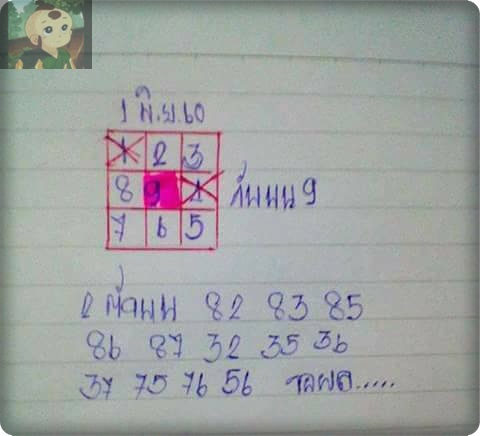 1 มิ.ย.60
1 2 3
8 9 1 วิ่งบน 9
7 6 5
2 ตัวบน 82 83 85
86 87 32 35 36
37 75 76 56 รอผล.....